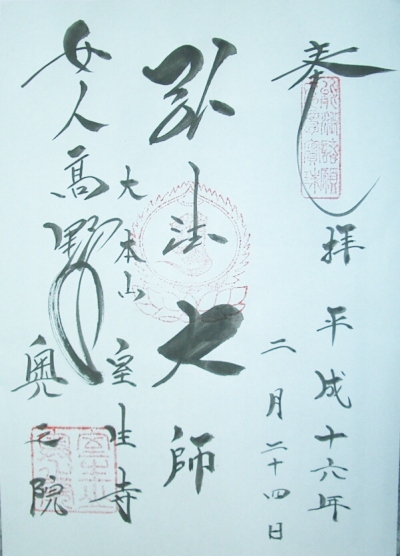 奉拝
平成十六年
二月二十四日
弘法大師
大本山 室生寺
女人高野
奥之院